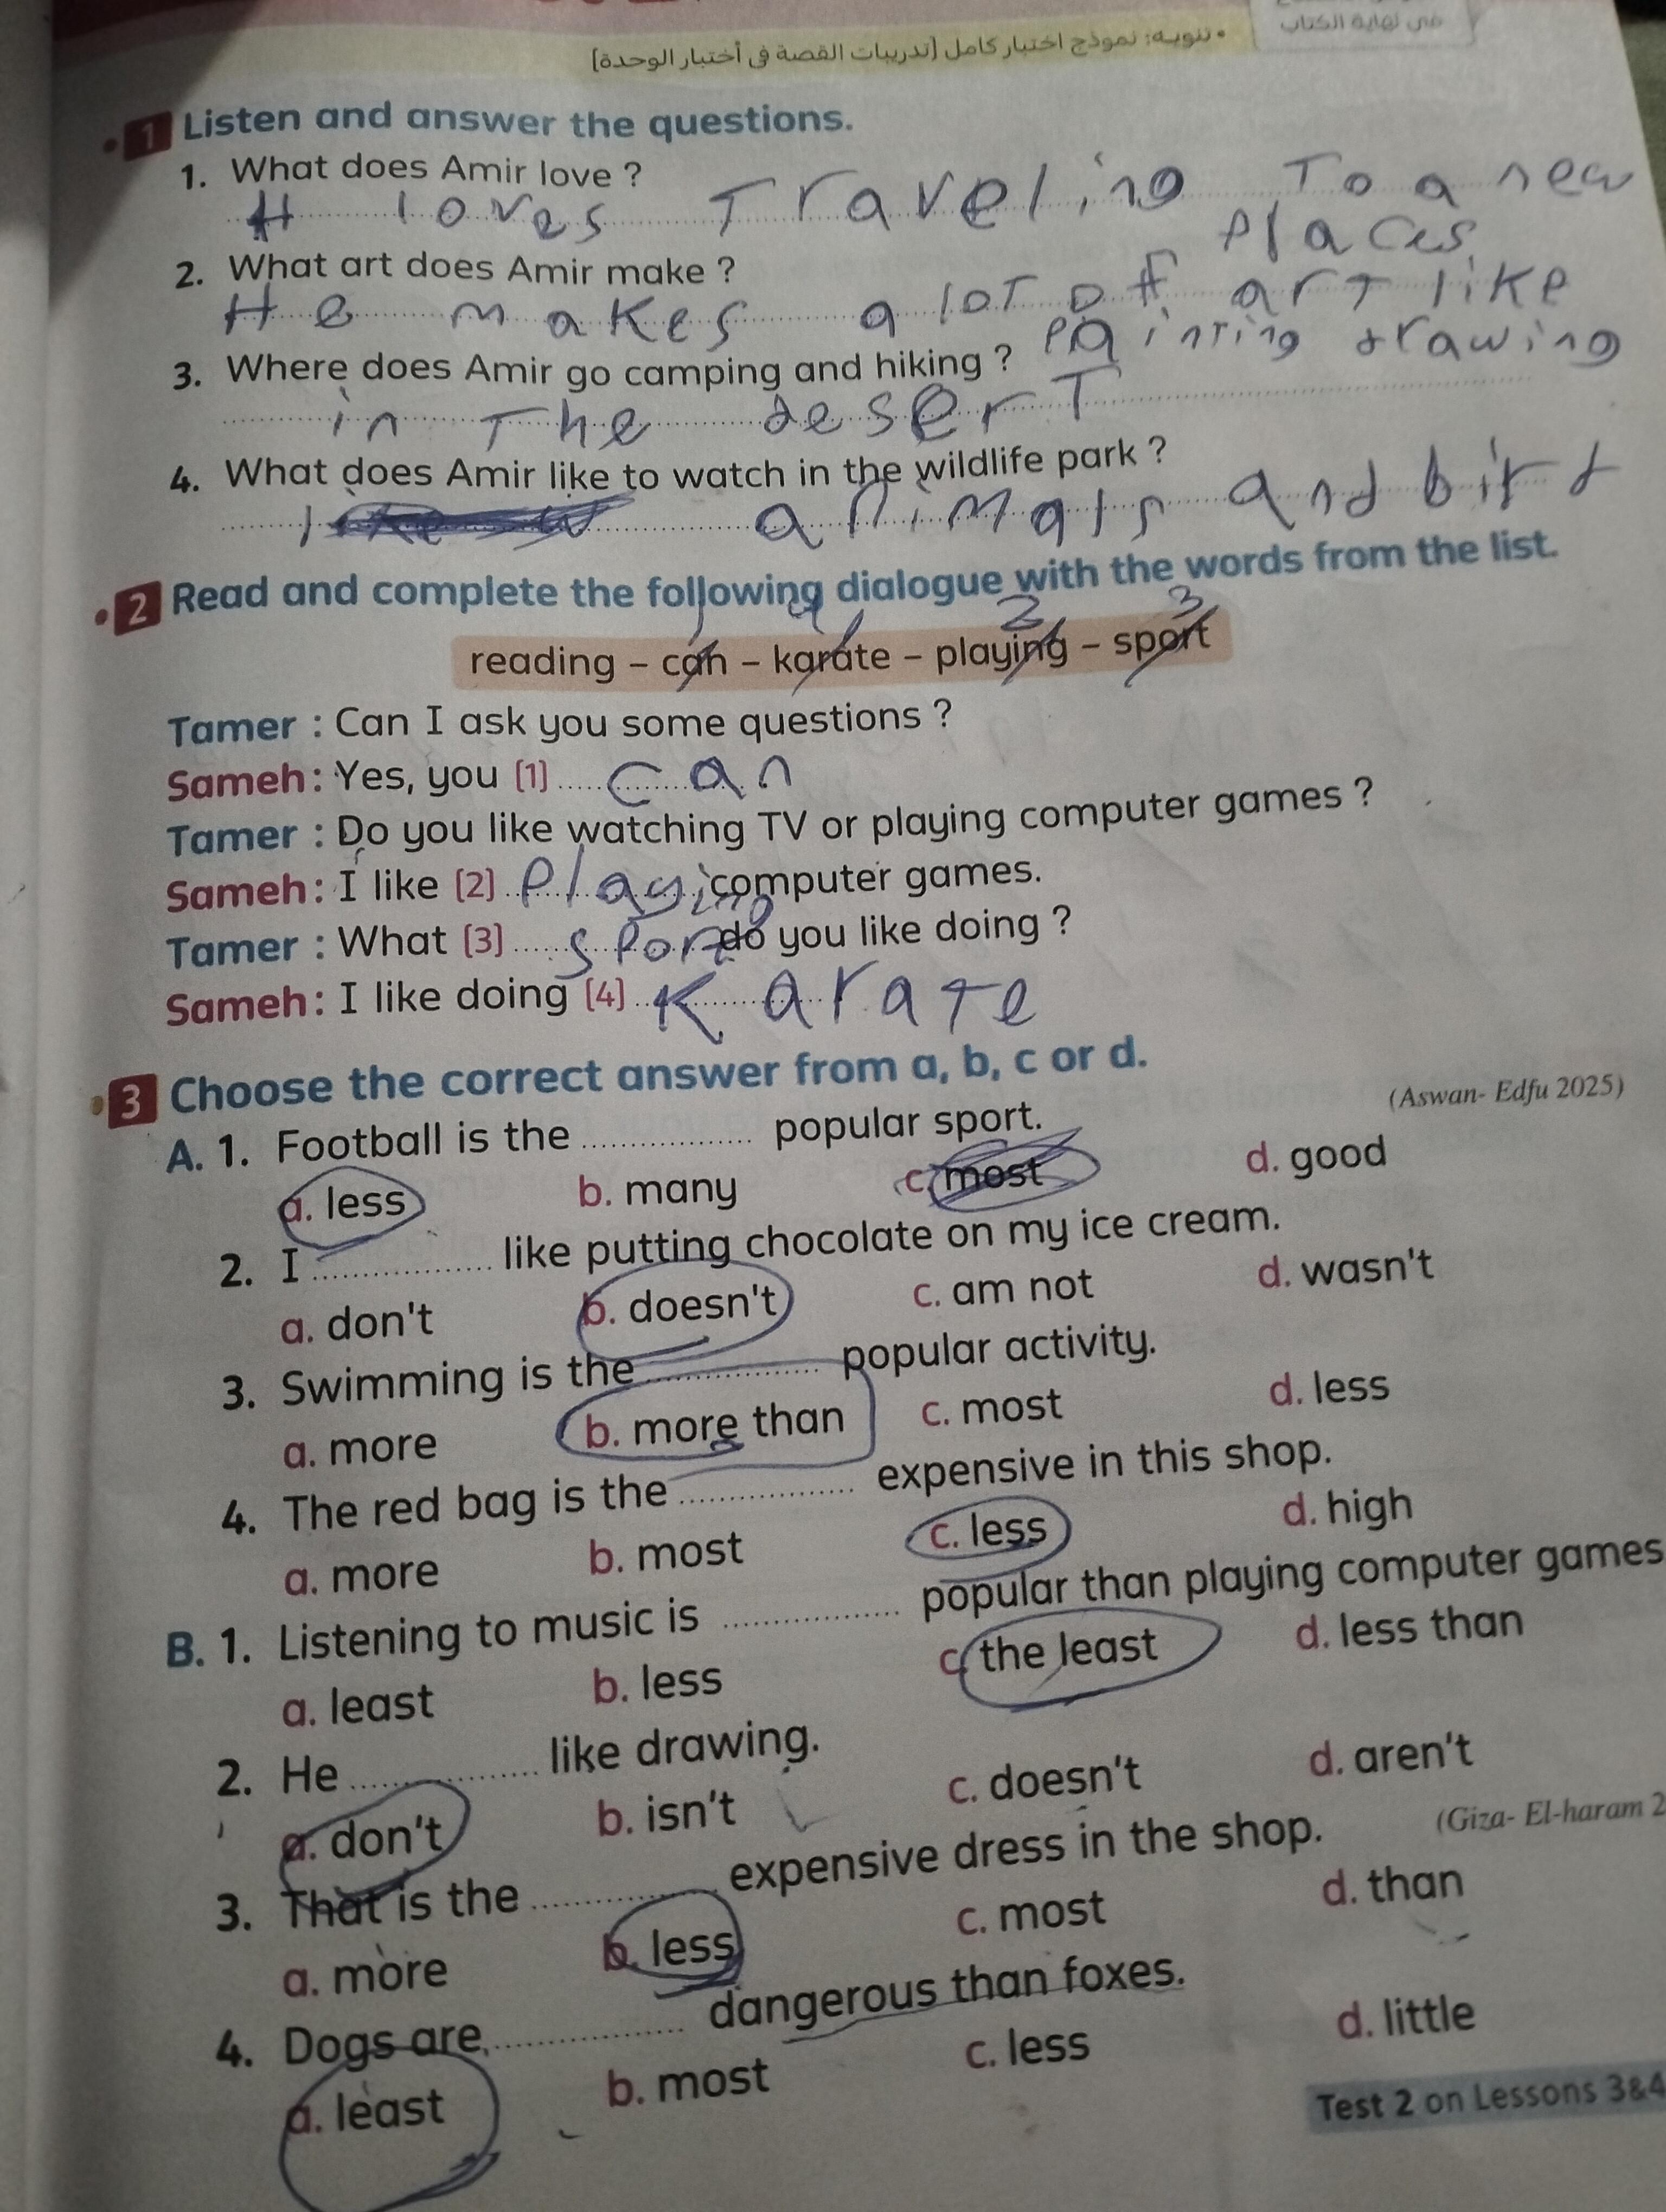 في نهاية الكتاب
• تنويه: نموذج اختبار كامل [تدريبات القصة في أختبار الوحدة]
1 Listen and answer the questions.
1. What does Amir love ?
H loves Traveling To a new
places
2. What art does Amir make ?
He makes a lot of art like
painting drawing
3. Where does Amir go camping and hiking ?
in The desert
4. What does Amir like to watch in the wildlife park ?
animals and bird
2 Read and complete the following dialogue with the words from the list.
1 4 2 3
reading – can – karate – playing – sport
Tamer : Can I ask you some questions ?
Sameh: Yes, you [1] can
Tamer : Do you like watching TV or playing computer games ?
Sameh: I like [2] playing computer games.
Tamer : What [3] sport do you like doing ?
Sameh: I like doing [4] Karate
3 Choose the correct answer from a, b, c or d.
(Aswan- Edfu 2025)
A. 1. Football is the ................. popular sport.
a. less b. many c. most d. good
2. I ................. like putting chocolate on my ice cream.
a. don't b. doesn't c. am not d. wasn't
3. Swimming is the ................. popular activity.
a. more b. more than c. most d. less
4. The red bag is the ................. expensive in this shop.
a. more b. most c. less d. high
B. 1. Listening to music is ................. popular than playing computer games
a. least b. less c. the least d. less than
2. He ................. like drawing.
a. don't b. isn't c. doesn't d. aren't
(Giza- El-haram 2
3. That is the ................. expensive dress in the shop.
a. more b. less c. most d. than
4. Dogs are ................. dangerous than foxes.
a. least b. most c. less d. little
Test 2 on Lessons 3&4